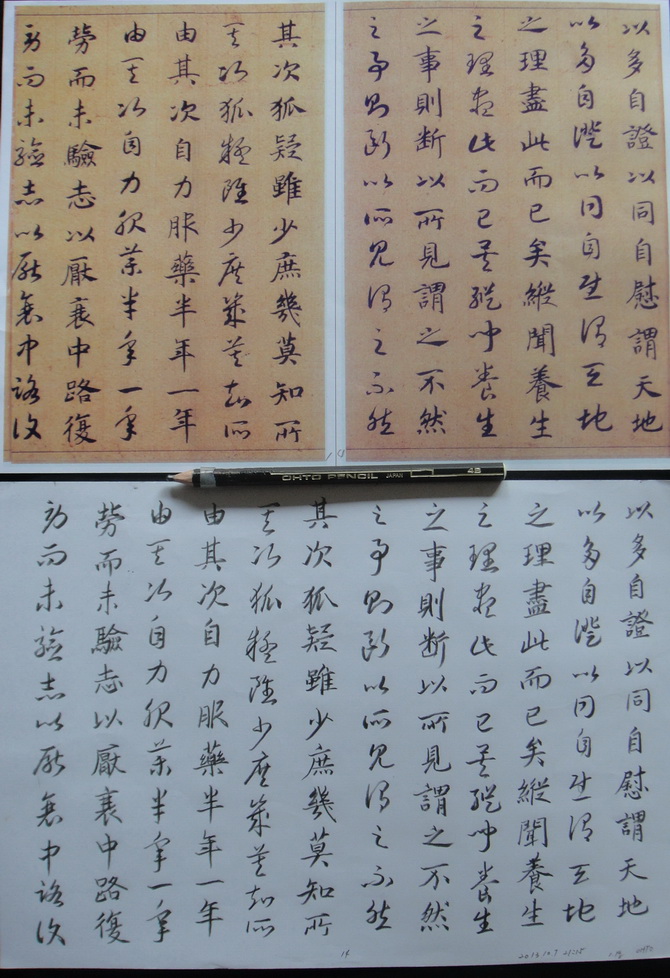 以多自證以同自慰謂天地
以多自證以同自慰謂天地
之理盡此而已矣縱聞養生
之理盡此而已矣縱聞養生
之事則斷以所見謂之不然
之事則斷以所見謂之不然
其次狐疑雖少庶幾莫知所
其次狐疑雖少庶幾莫知所
由其次自力服藥半年一年
由其次自力服藥半年一年
勞而未驗志以厭衰中路復
勞而未驗志以厭衰中路復
OHTO PENCIL JAPAN 4B
以多自證以同自慰謂天地
以多自證以同自慰謂天地
之理盡此而已矣縱聞養生
之理盡此而已矣縱聞養生
之事則斷以所見謂之不然
之事則斷以所見謂之不然
其次狐疑雖少庶幾莫知所
其次狐疑雖少庶幾莫知所
由其次自力服藥半年一年
由其次自力服藥半年一年
勞而未驗志以厭衰中路復
勞而未驗志以厭衰中路復
14